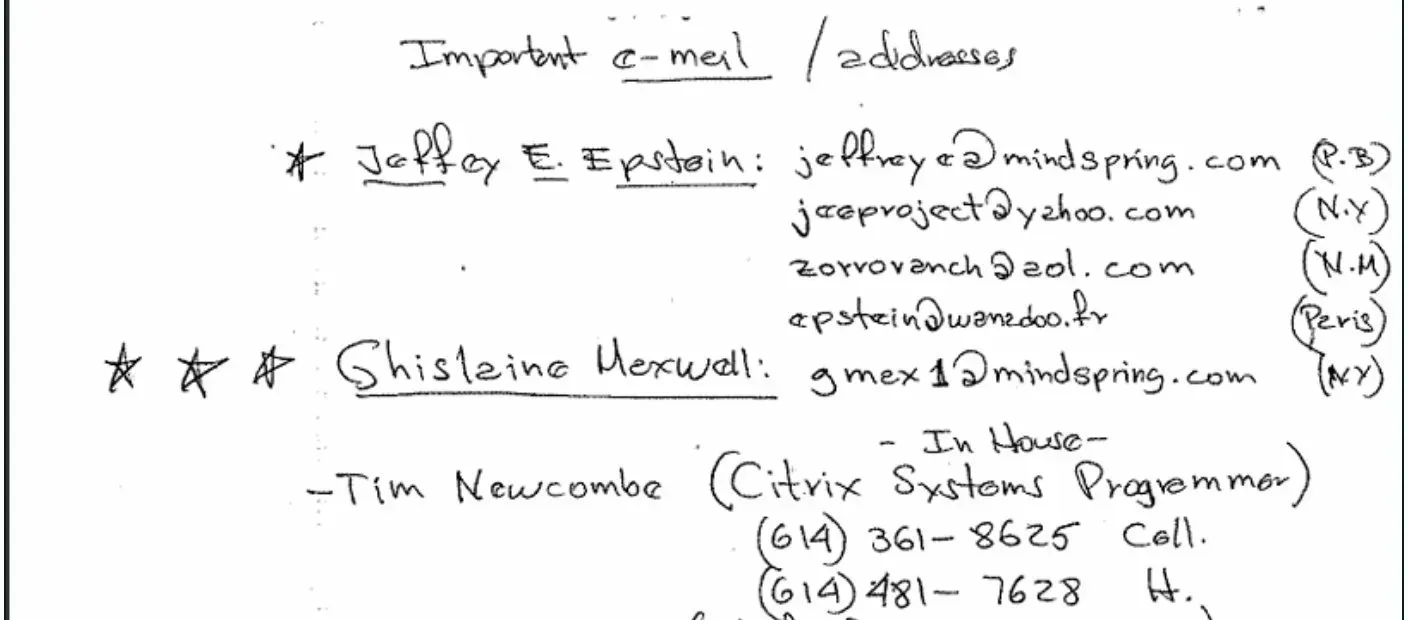 Important e-mail / addresses
★ Jeffey E. Epstein: jeffreye@mindspring.com (P.B)
jeeproject@yahoo.com (N.Y)
zorroranch@aol.com (N.M)
epstein@wanadoo.fr (Paris)
★ ★ ★ Ghislaine Maxwell: gmax1@mindspring.com (NY)
- In House -
- Tim Newcombe (Citrix Systems Programmer)
(614) 361-8625 Cell.
(614) 481-7628 H.